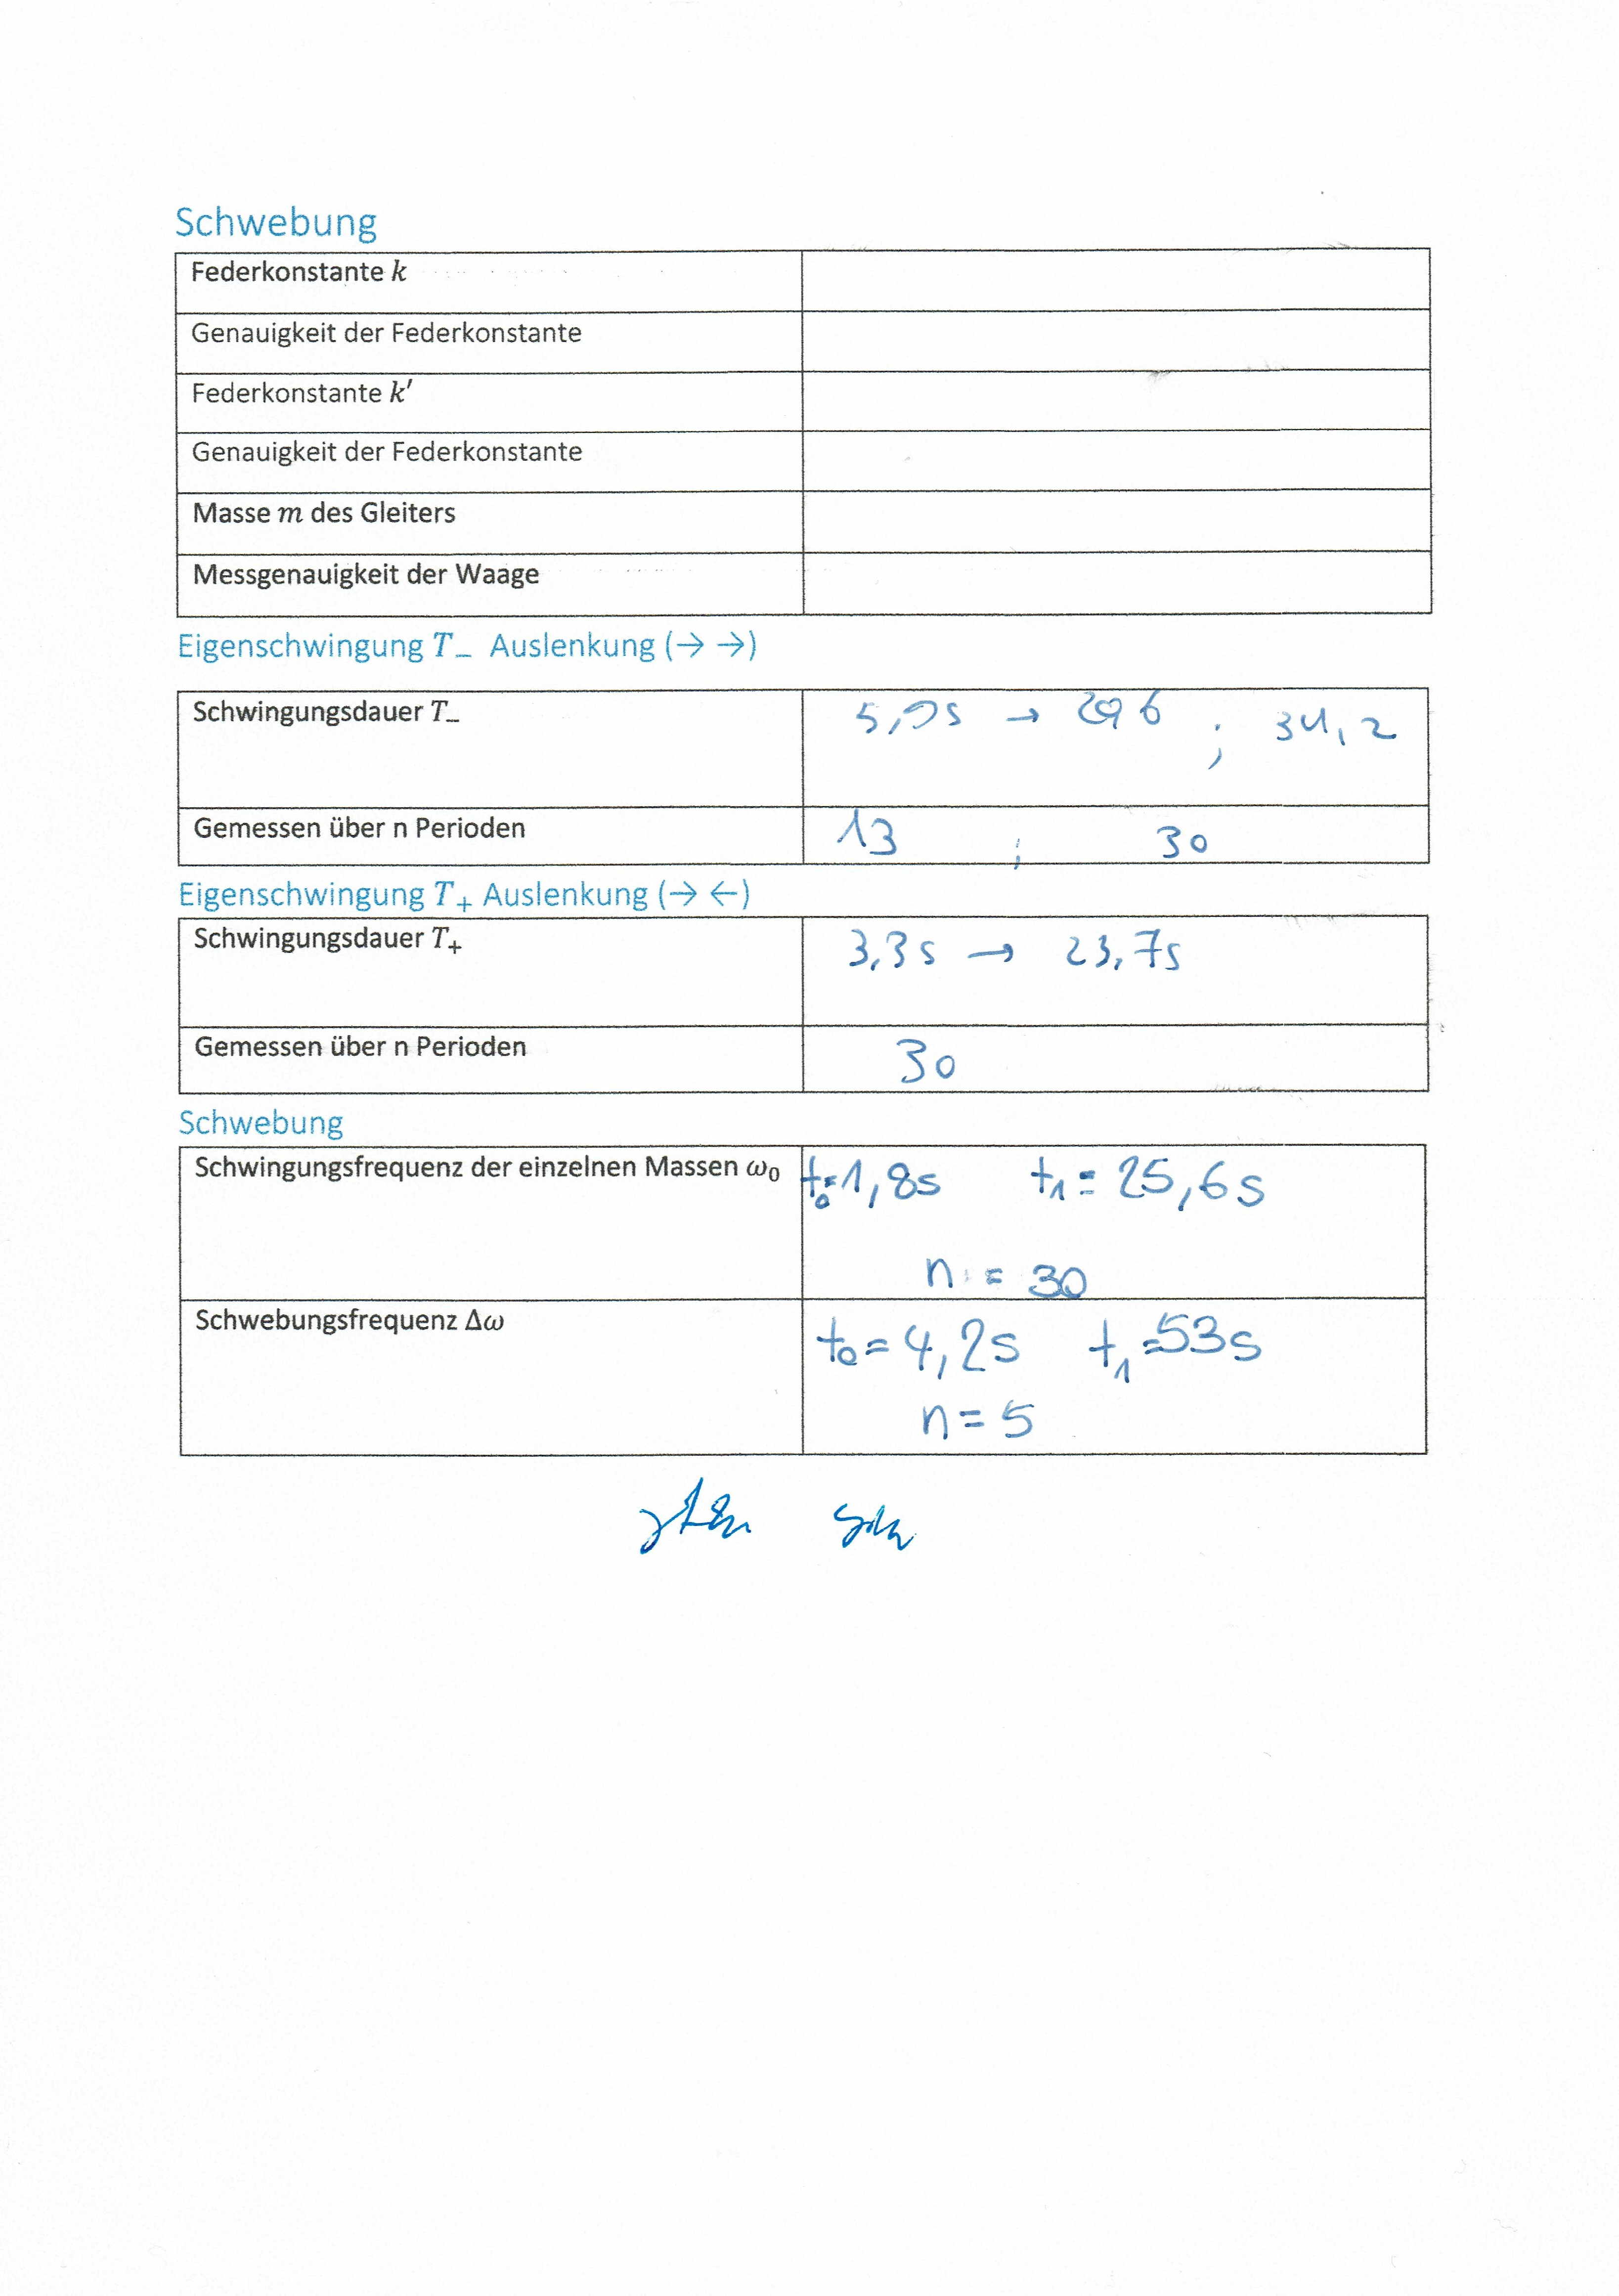 Schwebung
Federkonstante k
Genauigkeit der Federkonstante
Federkonstante k′
Genauigkeit der Federkonstante
Masse m des Gleiters
Messgenauigkeit der Waage
Eigenschwingung T₋ Auslenkung (→ →)
Schwingungsdauer T₋ → ; 34,2
Gemessen über n Perioden 13 ; 30
Eigenschwingung T₊ Auslenkung (→ ←)
Schwingungsdauer T₊ 3,3s → 23,7s
Gemessen über n Perioden 30
Schwebung
Schwingungsfrequenz der einzelnen Massen ω₀ t₀=1,8s t₁=25,6s
n = 30
Schwebungsfrequenz Δω t₀=4,2s t₁=53s
n=5